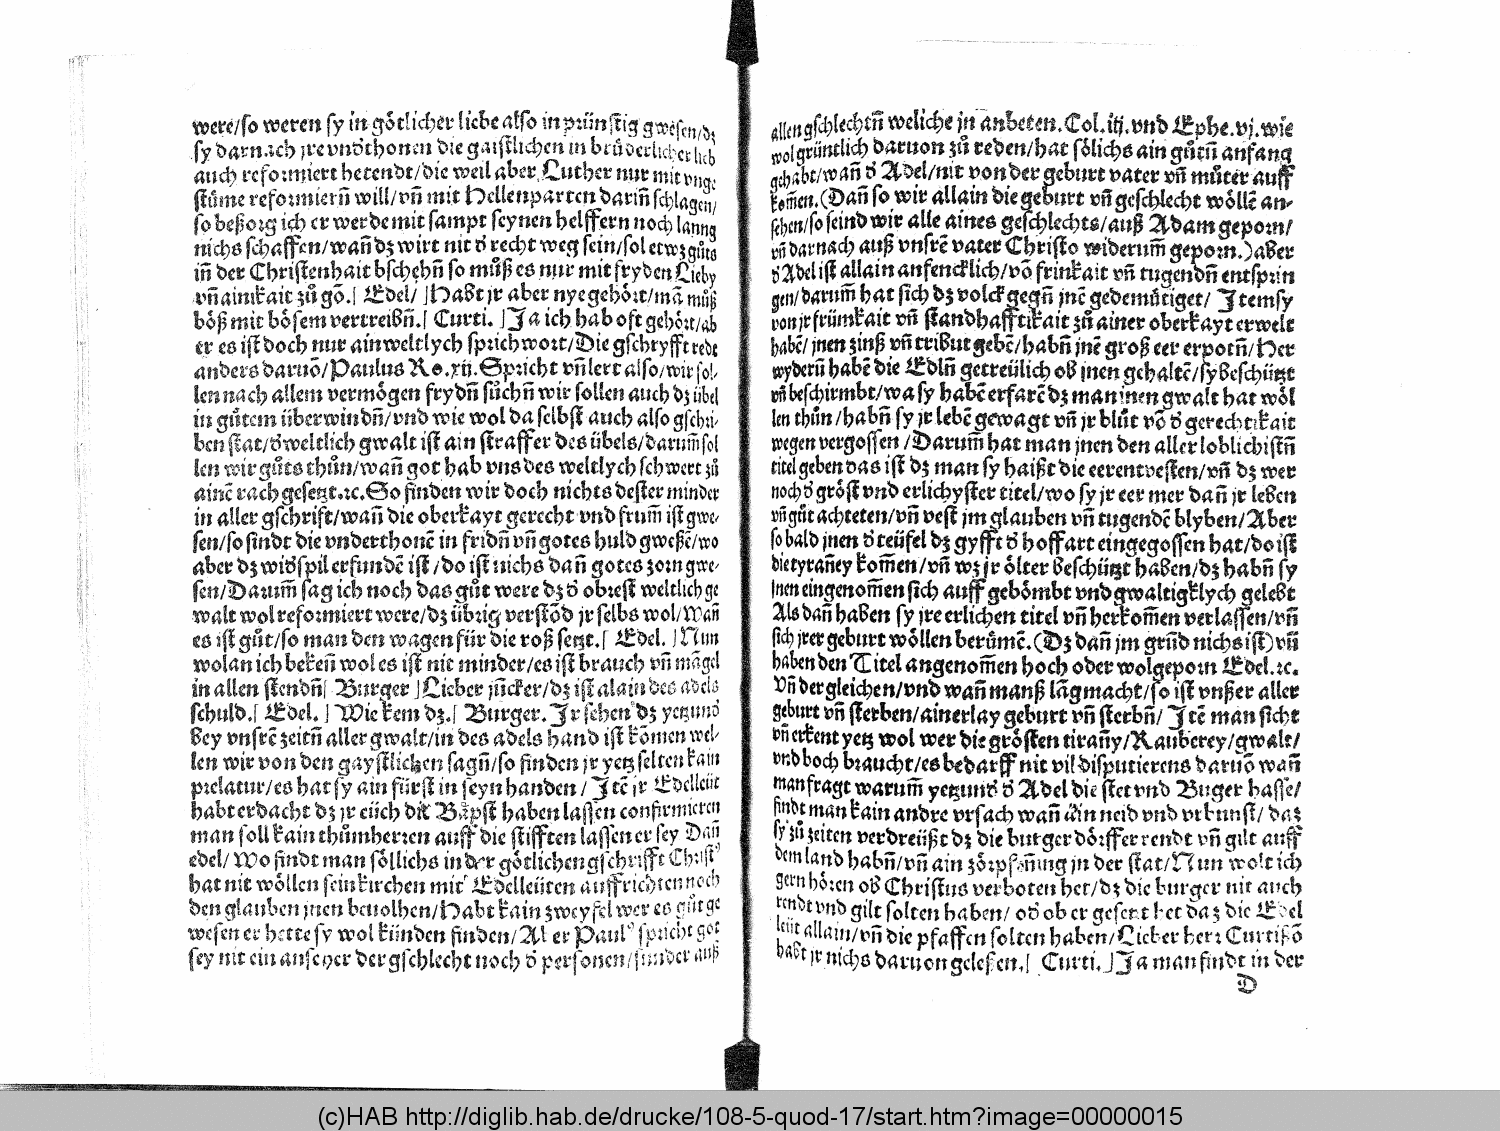 were/so weren sy in götlicher liebe also in prünstig gwesen/dz
sy darnach jre vndthonen die gaistlichen in brüderlicher lieb
auch reformiert hetendt/die weil aber Luther nur mit vnge
stüme reformiern̄ will/vn̄ mit Hellenparten darin̄ schlagen/
so beßorg ich er werde mit sampt seynen helffern noch lanng
nichs schaffen/wan̄ dz wirt nit d̄ recht weg sein/sol etwz gůts
in̄ der Christenhait bschehn̄ so můß es nur mit fryden Lieby
vn̄ ainikait zů gō.⌈ Edel/ ⌋Habt jr aber nye gehört/mā můß
böß mit bösem vertreibn̄.⌈ Curti. ⌋Ja ich hab oft gehört/ab
er es ist doch nur ain weltlych sprichwort/Die gschryfft redt
anders daruō/Paulus Ro.xij.Spricht vn̄ lert also/wir sol-
len nach allem vermögen frydn̄ sůchn̄ wir sollen auch dz übel
in gůtem überwindn̄/vnd wie wol da selbst auch also gschri-
ben stat/d̄ weltlich gwalt ist ain straffer des übels/darum̄ sol
len wir gůts thůn/wan̄ got hab vns des weltlych schwert zů
ainē rach gesetzt.⁊c.So finden wir doch nichts dester minder
in aller gschrift/wan̄ die oberkayt gerecht vnd frum̄ ist gwe-
sen/so sindt die vnderthonē in fridn̄ vn̄ gotes huld gweßē/wo
aber dz widspil erfundē ist/do ist nichs dan̄ gotes zorn gwe-
sen/Darum̄ sag ich noch das gůt were dz d̄ obrest weltlich ge
walt wol reformiert were/dz übrig verstōd jr selbs wol/Wan̄
es ist gůt/so man den wagen für die roß setzt.⌈ Edel. ⌋Nun
wolan ich beken̄ wol es ist nit minder/es ist brauch vn̄ māgel
in allen stendn̄⌈ Burger ⌋Lieber jn̄cker/dz ist alain des adels
schuld.⌈ Edel. ⌋ Wie kem dz.⌈ Burger. Jr sehen dz yetzund
bey vnsrē zeitn̄ aller gwalt/in des adels hand ist kōmen wel-
len wir von den gaystlichen sagn̄/so finden jr yetz selten kain
prelatur/es hat sy ain fürst in seyn handen/ Jtē jr Edelleüt
habt erdacht dz jr eüch die Bäpst haben lassen confirmieren
man soll kain thůmherren auff die stifften lassen er sey Dan̄
edel/ Wo findt man söllichs in der götlichen gschrifft Christ⁹
hat nit wöllen sein kirchen mit Edelleüten auffrichten noch
den glauben jnen beuolhen/Habt kain zweyfel wer es gůt ge
wesen er hette sy wol künden finden/Aber Paul⁹ spricht got
sey nit ein anseher der gschlecht noch d̄ personen/sunder auß
allen gschlechtn̄ weliche jn anbeten.Col.iij.vnd Ephe.vj.wie
wol grüntlich daruon zů reden/hat sölichs ain gůtn̄ anfang
gehabt/wan̄ d̄ Adel/nit von der geburt vater vn̄ můter auff
kom̄en.(Dan̄ so wir allain die geburt vn̄ geschlecht wöllē an-
sehen/so seind wir alle aines geschlechts/auß Adam geporn/
vn̄ darnach auß vnsrē vater Christo widerum̄ geporn.)aber
d̄ Adel ist allain anfencklich/vō frinkait vn̄ tugendn̄ entsprin
gen/darum̄ hat sich dz volck gegn̄ jnē gedemütiget/ Jtem sy
von jr frümkait vn̄ standhafftikait zů ainer oberkayt erwelt
habē/jnen zinß vn̄ tribut gebē/habn̄ jnē groß eer erpotn̄/Her
wyderū habē die Edln̄ getreülich ob jnen gehaltē/sy beschützt
vn̄ beschirmbt/wa sy habē erfarē dz man jnen gwalt hat wöl
len thůn/habn̄ sy jr lebē gewagt vn̄ jr blůt vō d̄ gerechtikait
wegen vergossen/Darum̄ hat man jnen den aller loblichistn̄
titel geben das ist dz man sy haißt die eerentvesten/vn̄ dz wer
noch d̄ gröst vnd erlichyster titel/wo sy jr eer mer dan̄ jr leben
vn̄ gůt achteten/vn̄ vest jm glauben vn̄ tugendē blyben/Aber
so bald jnen d̄ teüfel dz gyfft d̄ hoffart eingegossen hat/do ist
die tyran̄ey kom̄en/vn̄ wz jr ölter beschützt haben/dz habn̄ sy
jnen eingenom̄en sich auff gebömbt vnd gwaltigklych gelebt
Als dan̄ haben sy jre erlichen titel vn̄ herkom̄en verlassen/vn̄
sich jrer geburt wöllen berümē.(Dz dan̄ jm grūd nichs ist)vn̄
haben den Titel angenom̄en hoch oder wolgeporn Edel.⁊c.
Vn̄ der gleichen/vnd wan̄ manß lāg macht/so ist vnßer aller
geburt vn̄ sterben/ainerlay geburt vn̄ sterbn̄/ Jtē man sicht
vn̄ erkent yetz wol wer die grösten tiran̄y/Rauberey/gwalt/
vnd boch braucht/es bedarff nit vil disputierens daruō wan̄
man fragt warum̄ yetzund d̄ Adel die stet vnd Buger hasse/
findt man kain andre vrsach wan̄ ain neid vnd vrkunst/ daz
sy zů zeiten verdreüßt dz die burger dörffer rendt vn̄ gilt auff
dem land habn̄/vn̄ ain zörpfen̄ing jn der stat/Nun wolt ich
gern hören ob Christus verboten het/dz die burger nit auch
rendt vnd gilt solten haben/ od ob er gesetzt het daz die Edel
leüt allain/vn̄ die pfaffen solten haben/Lieber herr Curtisō
habt jr nichs daruon gelesen.⌈ Curti.⌋Ja man findt in der
D
(c)HAB http://diglib.hab.de/drucke/108-5-quod-17/start.htm?image=00000015